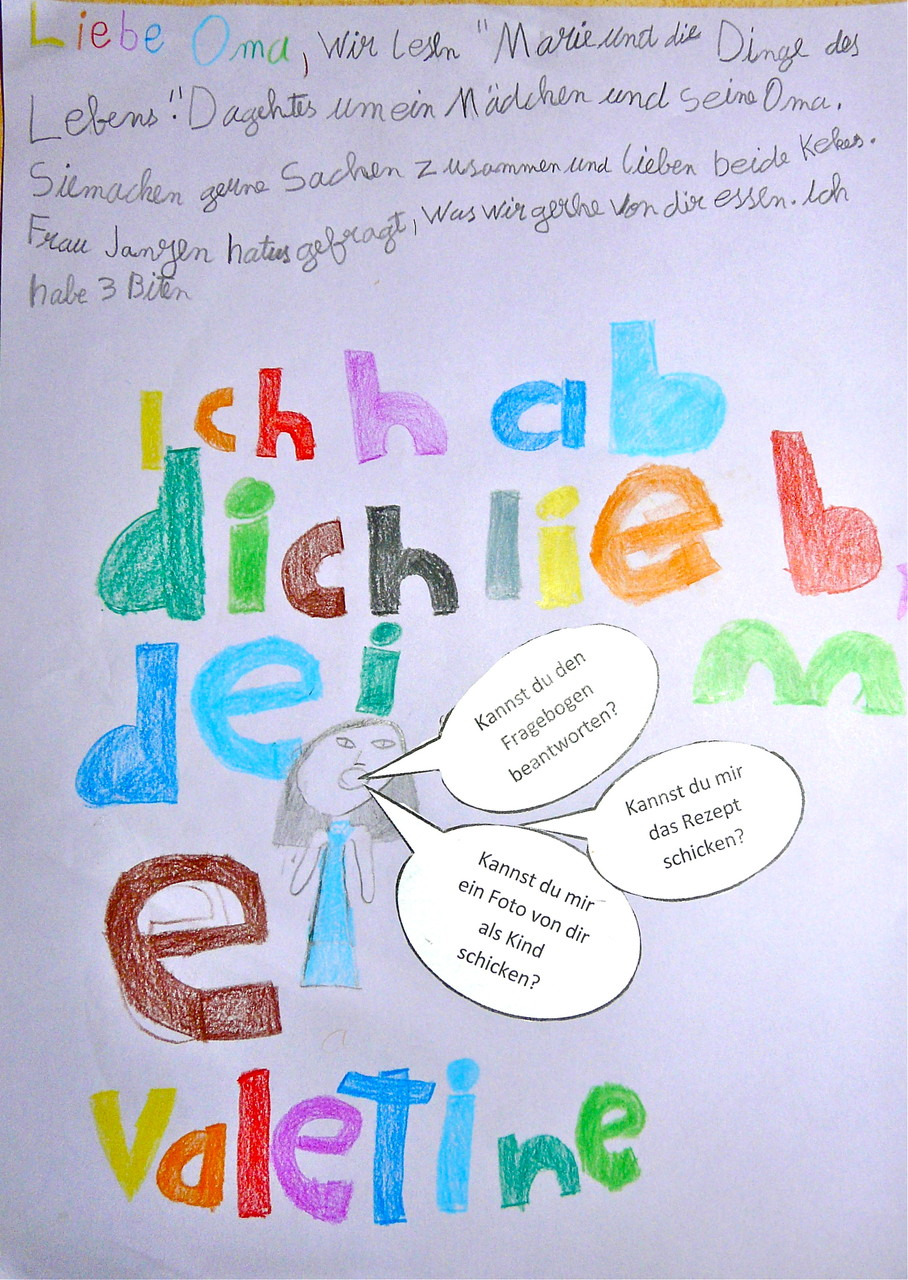 Liebe Oma, Wir lesen "Marie und die Dinge des
Lebens". Da gehtes um ein Mädchen und seine Oma.
Siemachen gerne Sachen zusammen und lieben beide Kekes.
Frau Janzen hatus gefragt, Was wir gerhe von dir essen. Ich
habe 3 Biten
Ich hab
dich lieb,
dei m
e
Kannst du den
Fragebogen
beantworten?
Kannst du mir
das Rezept
schicken?
Kannst du mir
ein Foto von dir
als Kind
schicken?
valetine